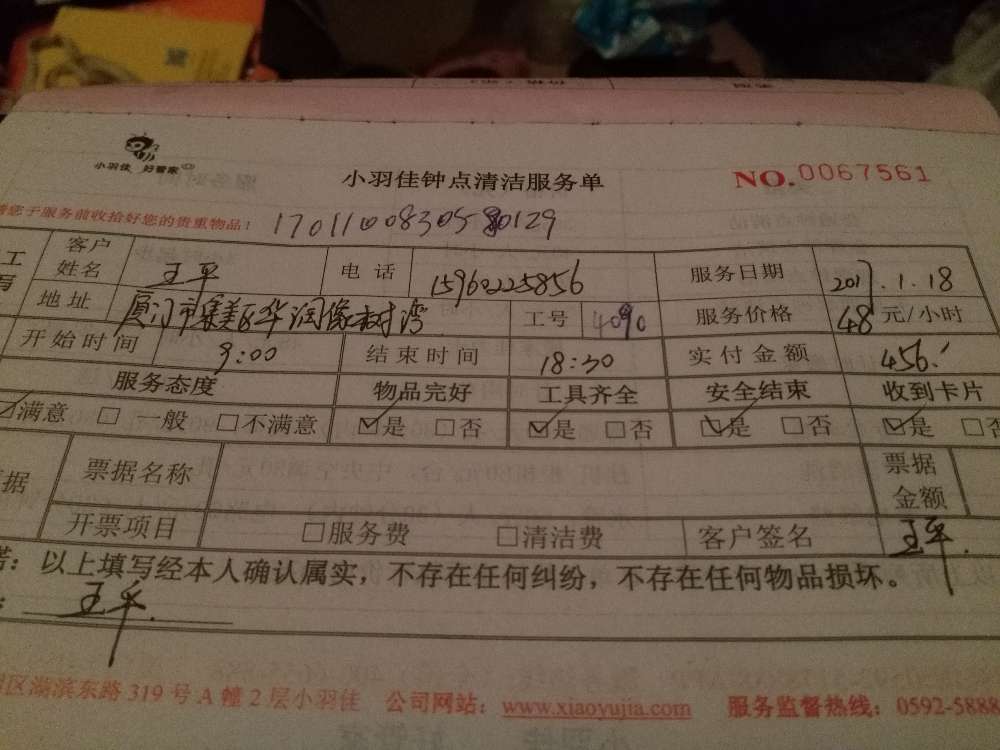 小羽佳 好管家
小羽佳钟点清洁服务单 NO.0067561
请您于服务前收拾好您的贵重物品！
客户姓名 王平 电话 15960225856 服务日期 2017.1.18
地址 工号 4090 服务价格 48 元/小时
开始时间 9:00 结束时间 18:30 实付金额 456.
服务态度 物品完好 工具齐全 安全结束 收到卡片
☑满意 □一般 □不满意 ☑是 □否 ☑是 □否 ☑是 □否 ☑是 □否
据 票据名称 票据金额
开票项目 □服务费 □清洁费 客户签名 王平.
诺：以上填写经本人确认属实，不存在任何纠纷，不存在任何物品损坏。
：王平.
区湖滨东路 319 号 A 幢 2 层小羽佳 公司网站：www.xiaoyujia.com 服务监督热线：0592-5888